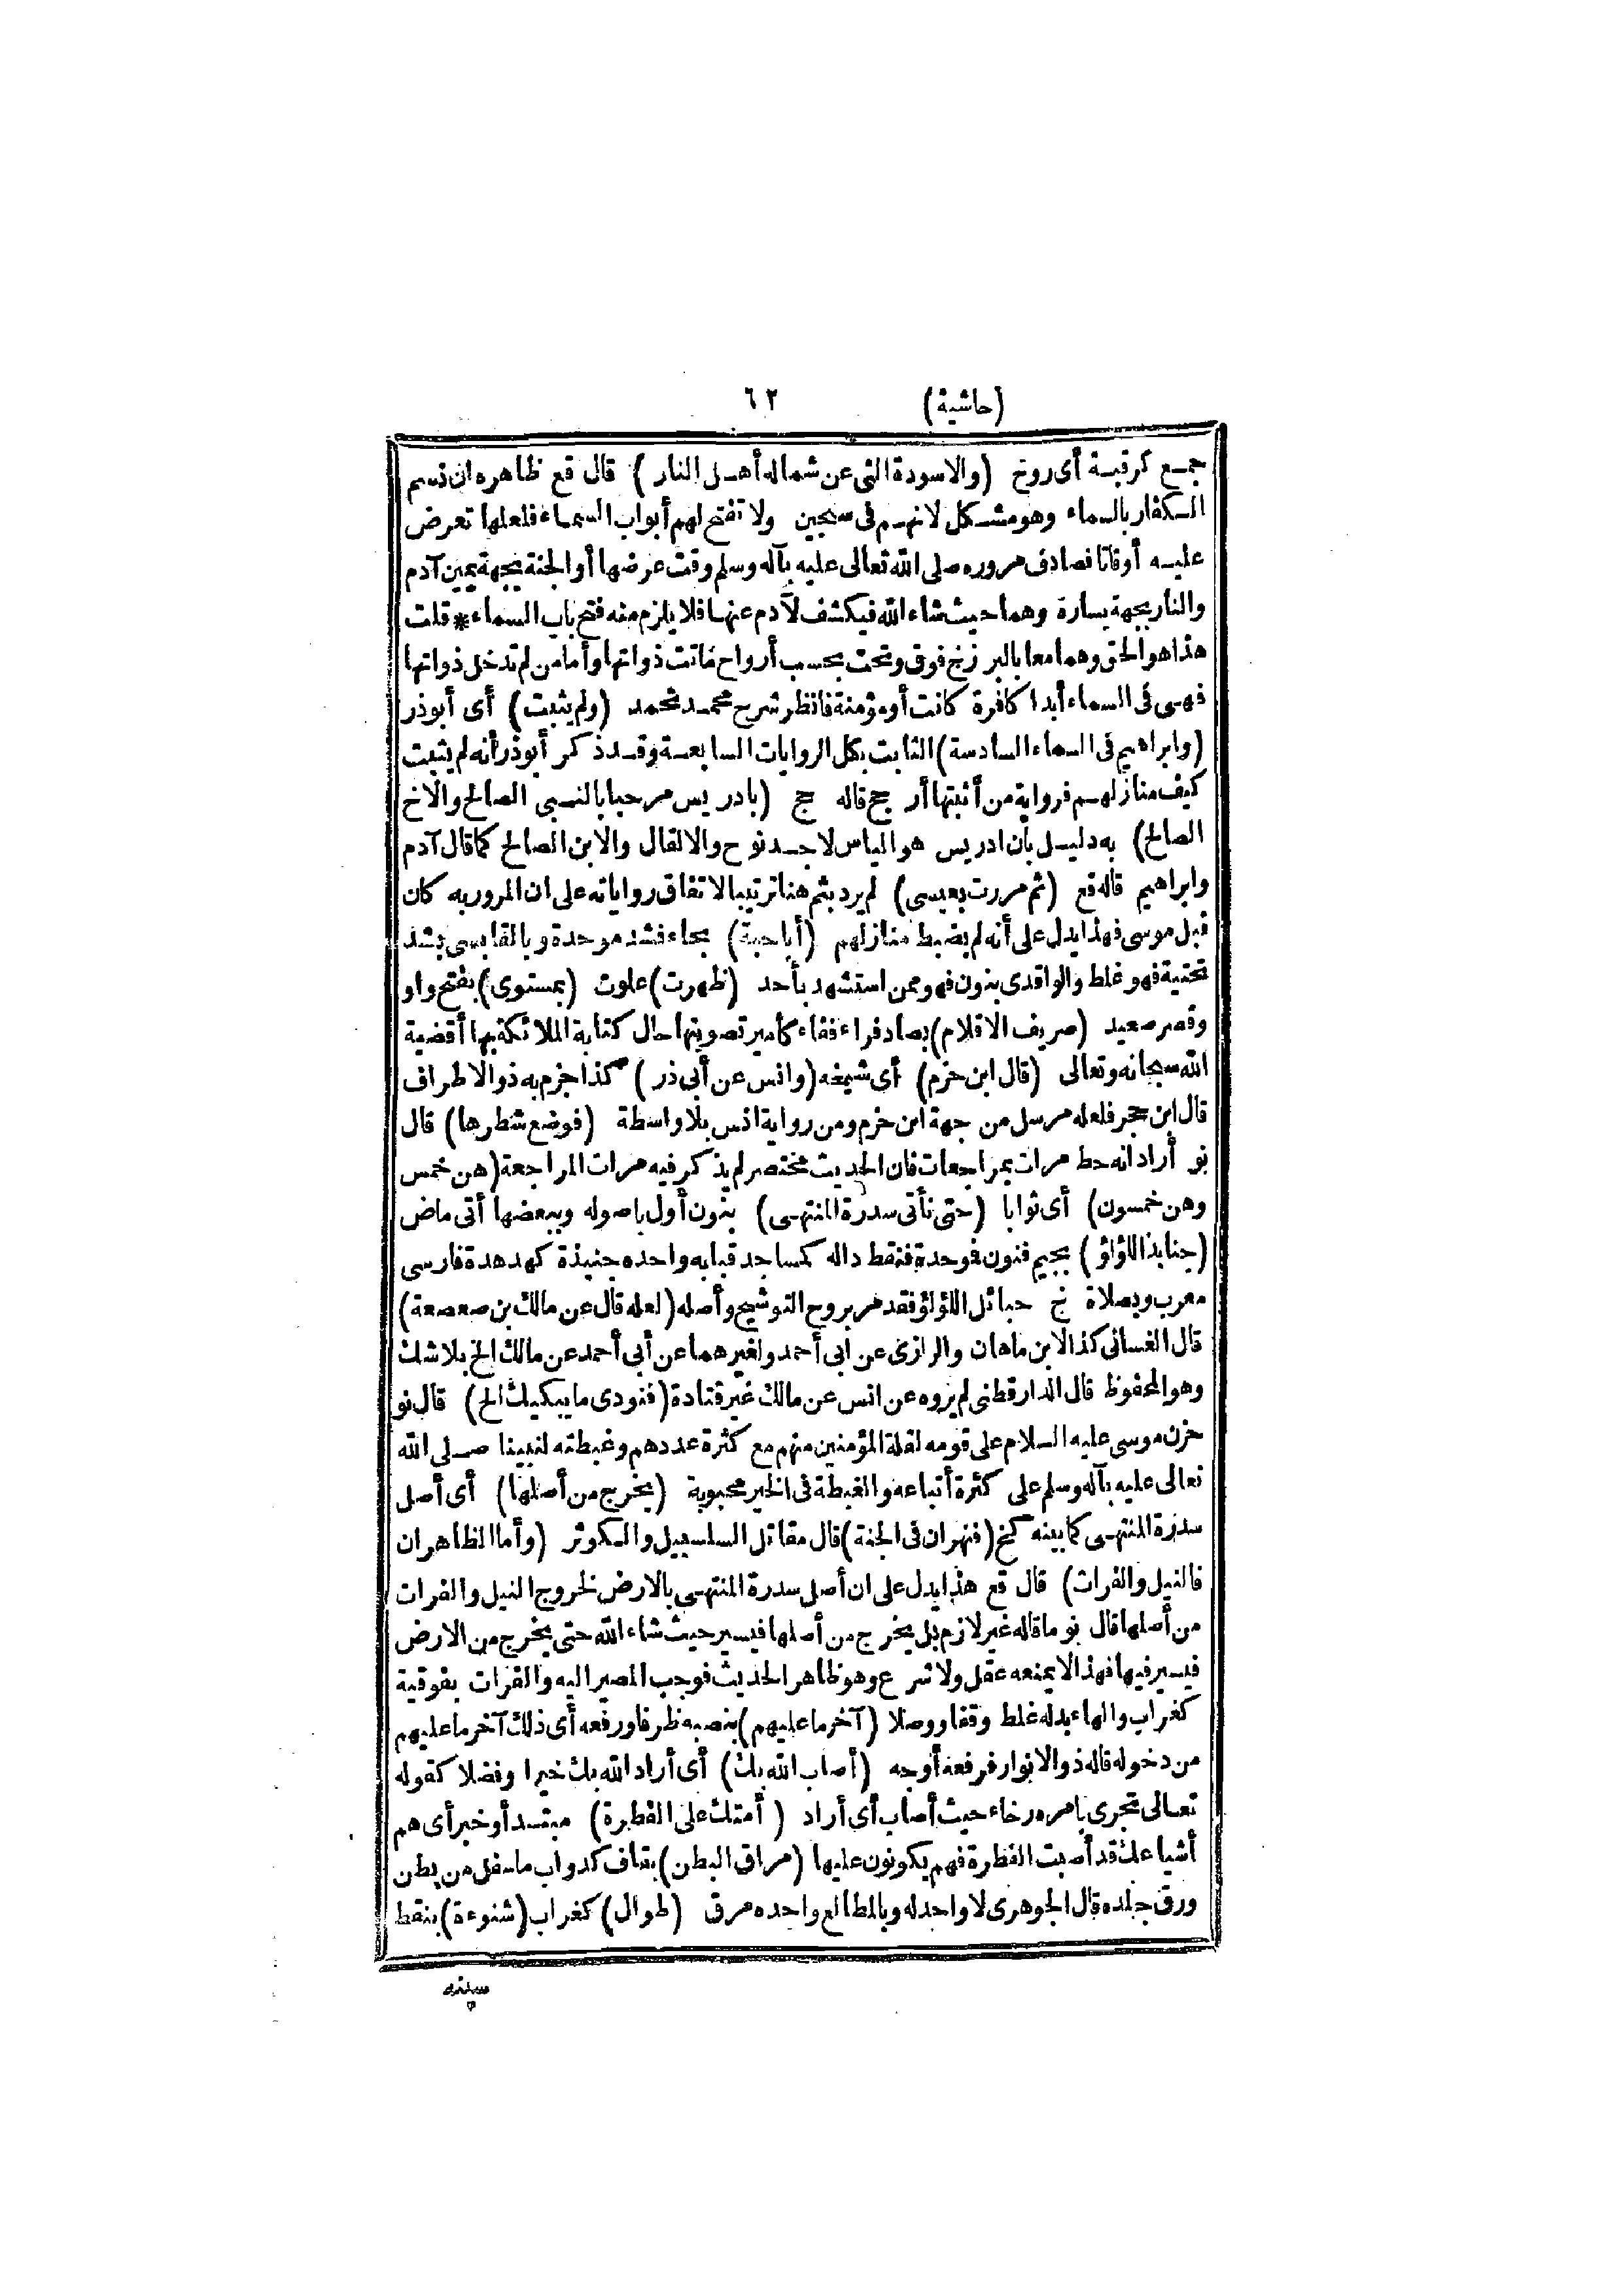 (حاشية) ٦٢
جمع كرقبة أى روخ (والاسودة التى عن شماله أهل النار) قال قع ظاهره ان نسم
الكفار بالسماء وهو مشكل لانهم فى سجين ولا تفتح لهم أبواب السماء فلعلها تعرض
عليه أوقاتا فصادف مروره صلى الله تعالى عليه بآله وسلم وقت عرضها أو الجنة بجهة يمين آدم
والنار بجهة يساره وهما حيث شاء الله فيكشف لآدم عنها فلا يلزم منه فتح باب السماء * قلت
هذا هو الحق وهما معا بالبرزخ فوق وتحت بحسب أرواح ماتت ذواتها وأما من لم تدخل ذواتها
فهى فى السماء أبدا كافرة كانت أو مؤمنة فانظر شرح محمد محمد (ولم يثبت) أى أبوذر
(وابراهيم فى السماء السادسة) الثابت بكل الروايات السابعة وقد ذكر أبوذر أنه لم يثبت
كيف منازلهم فرواية من أثبتها أرجح قاله حج (بادريس مرحبا بالنبى الصالح والاخ
الصالح) به دليل بأن ادريس هو الياس لاجد نوح والا لقال والابن الصالح كما قال آدم
وابراهيم قاله قع (ثم مررت بعيسى) لم يرد بثم هنا ترتيبا لاتفاق رواياته على ان المرور به كان
قبل موسى فهذا يدل على أنه لم يضبط منازلهم (أباحبة) بحاء فشد موحدة وبالقابسى بشد
تحتية فهو غلط والواقدى بنون فهو ممن استشهد بأحد (ظهرت) علوت (بمستوى) بفتح واو
وقصر صعيد (صريف الاقلام) بصاد فراء ففاء كأمير تصويتها حال كتابة الملائكة بها أقضية
الله سبحانه وتعالى (قال ابن حزم) أى شيخه (وانس عن أبى ذر) كذا جزم به ذو الاطراف
قال ابن حجر فلعله مرسل من جهة ابن حزم ومن رواية انس بلا واسطة (فوضع شطرها) قال
نو أراد انه حط مرات بمراجعات فان الحديث مختصر لم يذكر فيه مرات المراجعة (هن خمس
وهن خمسون) أى ثوابا (حتى نأتى سدرة المنتهى) بنون أول باصوله وببعضها أتى ماض
(جنابذ اللؤلؤ) بجيم فنون فوحدة فنقط داله كمساجد قبابه واحده جنبذة كهدهدة فارسى
معرب وبصلاة خ حبائل اللؤلؤ فقد مر بروح التوشيح وأصله (لعله قال عن مالك بن صعصعة)
قال الغسانى كذا لابن ماهان والرازى عن ابى أحمد ولغيرهما عن أبى أحمد عن مالك الخ بلاشك
وهو المحفوظ قال الدارقطنى لم يروه عن انس عن مالك غير قتادة (فنودى ما يبكيك الخ) قال نو
حزن موسى عليه السلام على قومه لقلة المؤمنين منهم مع كثرة عددهم وغبطته لنبينا صلى الله
تعالى عليه بآله وسلم على كثرة أتباعه والغبطة فى الخير محبوبة (يخرج من أصلها) أى أصل
سدرة المنتهى كما بينه كخ (فنهران فى الجنة) قال مقاتل السلسبيل والكوثر (وأما الظاهران
فالنيل والفرات) قال قع هذا يدل على ان أصل سدرة المنتهى بالارض لخروج النيل والفرات
من أصلها قال نو ما قاله غير لازم بل يخرج من أصلها فيسير حيث شاء الله حتى يخرج من الارض
فيسير فيها فهذا لا يمنعه عقل ولا شرع وهو ظاهر الحديث فوجب المصير اليه والفرات بفوقية
كغراب والهاء بدله غلط وقفا ووصلا (آخر ما عليهم) بنصبه ظرفا ورفعه أى ذلك آخر ما عليهم
من دخوله قاله ذو الانوار فرفعه أوجه (أصاب الله بك) أى أراد الله بك خيرا وفضلا كقوله
تعالى تجرى بامره رخاء حيث أصاب أى أراد (أمتك على الفطرة) مبتدأ وخبر أى هم
أشياعك قد أصبت الفطرة فهم يكونون عليها (مراق البطن) بقاف كدواب ما سفل من بطن
ورق جلده قال الجوهرى لا واحد له وبالمطالع واحده مرق (طوال) كغراب (شنوءة) بنقط
سينه